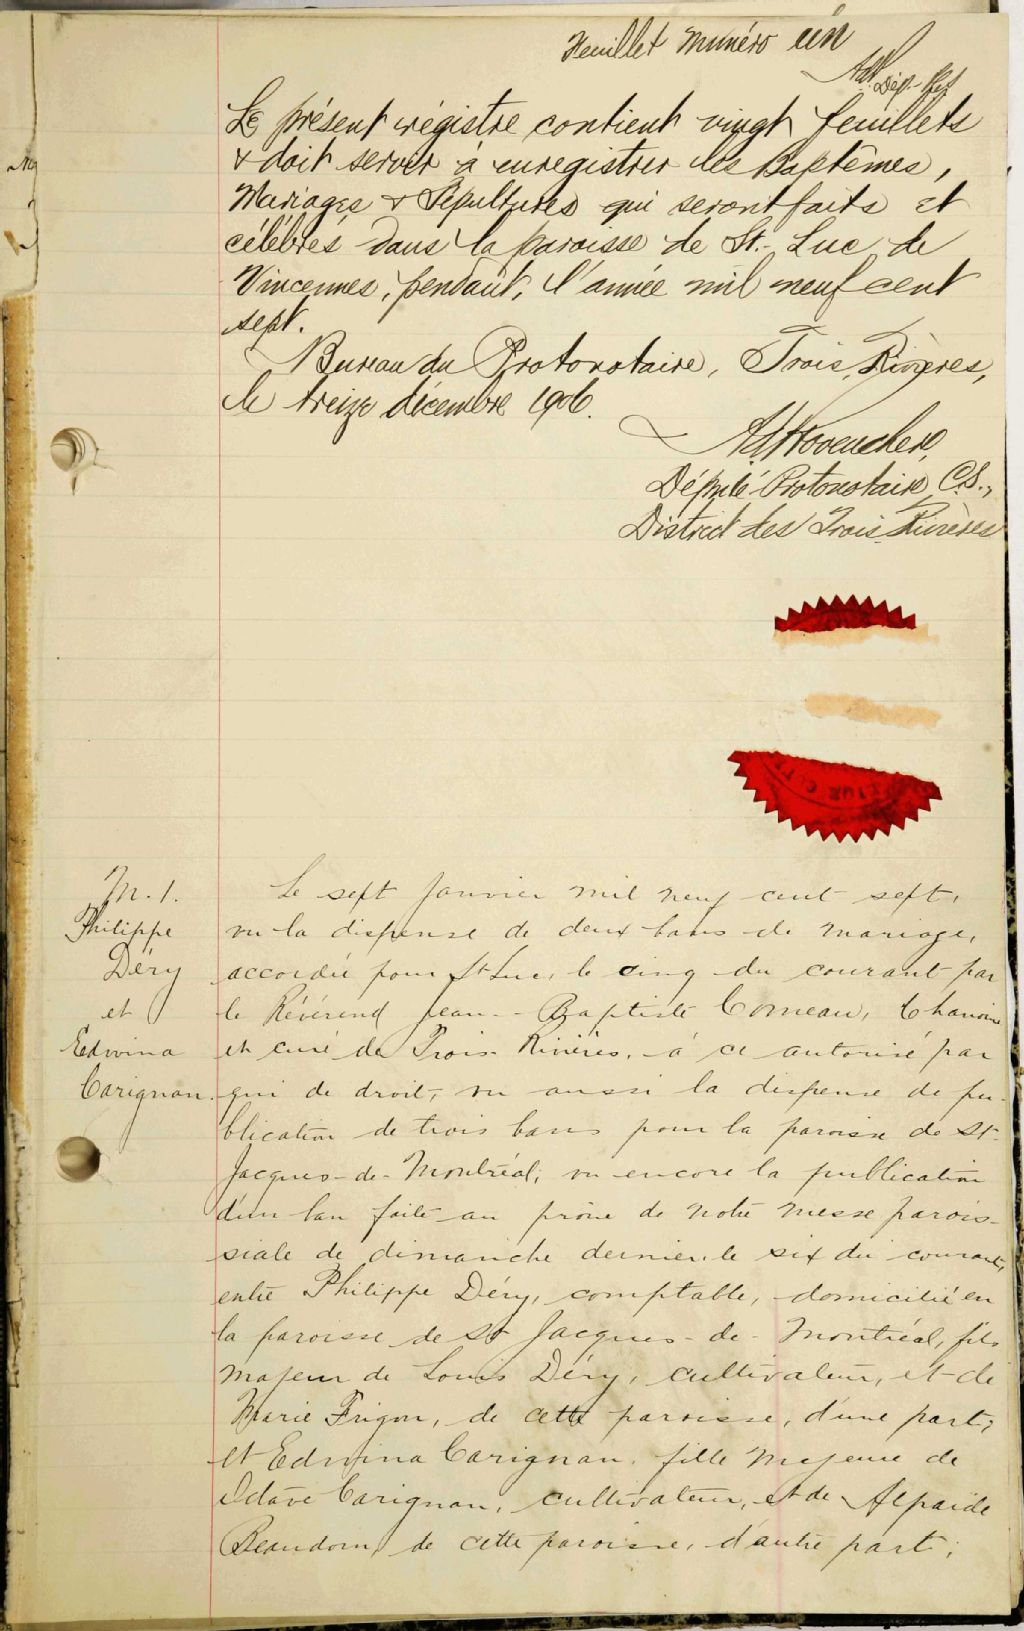 Feuillet Numéro un
Dép. Ptre
Le présent régistre contient vingt feuillets
& doit server à enregistrer les Baptêmes,
Mariages & Sépultures qui seront faits et
célébrés dans la paroisse de St. Luc de
Vincennes, pendant, l'année mil neuf cent
sept.
Bureau du Protonotaire, Trois Rivières,
le treize décembre 1906.
Député Protonotaire C.S.,
District des Trois Rivières
M. 1.
Philippe
Déry
et
Edwina
Carignan.
Le sept Janvier mil neuf cent sept,
vu la dispense de deux bans de mariage,
accordée pour St Luc, le cinq du courant par
le Révérend Jean-Baptiste Comeau, Chanoine
et curé de Trois-Rivières, à ce autorisé par
qui de droit, vu aussi la dispense de pu-
blication de trois bans pour la paroisse de St-
Jacques-de-Montréal, vu encore la publication
d'un ban faite au prône de notre messe parois-
siale de dimanche dernier le six du courant,
entre Philippe Déry, comptable, domicilié en
la paroisse de St Jacques-de-Montréal, fils
majeur de Louis Déry, cultivateur, et de
Marie Frigon, de cette paroisse, d'une part;
et Edwina Carignan, fille majeure de
Octave Carignan, cultivateur, et de Alpaide
Beaudoin, de cette paroisse, d'autre part;